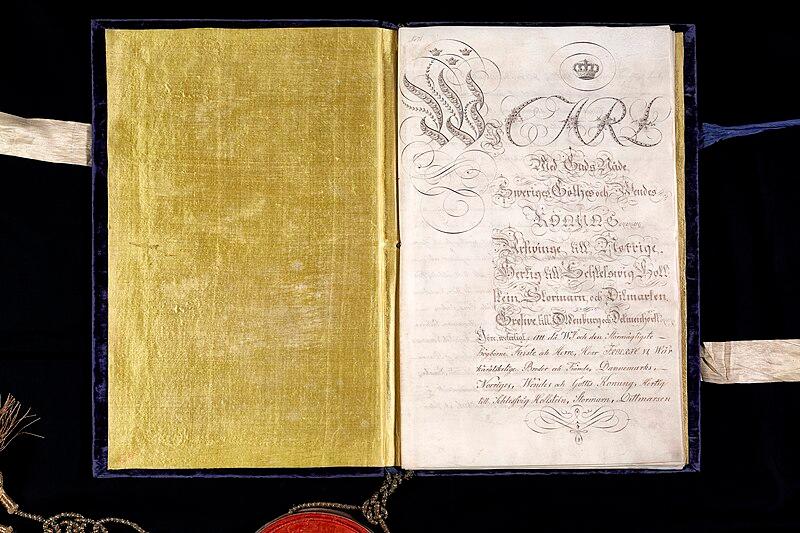 Wi CARL
Med Guds Nåde,
Sweriges, Göthes och Wendes
KONUNG
Arfwinge till Norrige,
Hertig till Schleswig Holl
stein, Stormarn, och Ditmarsen,
Grefwe till Oldenburg och Delmenhorst
Göre witterligt, att då Wi, och den Stormägtigste
Högborne Furste och Herre, Herr FREDRIC VI Wår
käraälskelige Broder och Frände, Dannemarks,
Norriges, Wendes och Göthes Konung, Hertig
till Schlesswig Hollstein, Stormarn, Dittmarsen